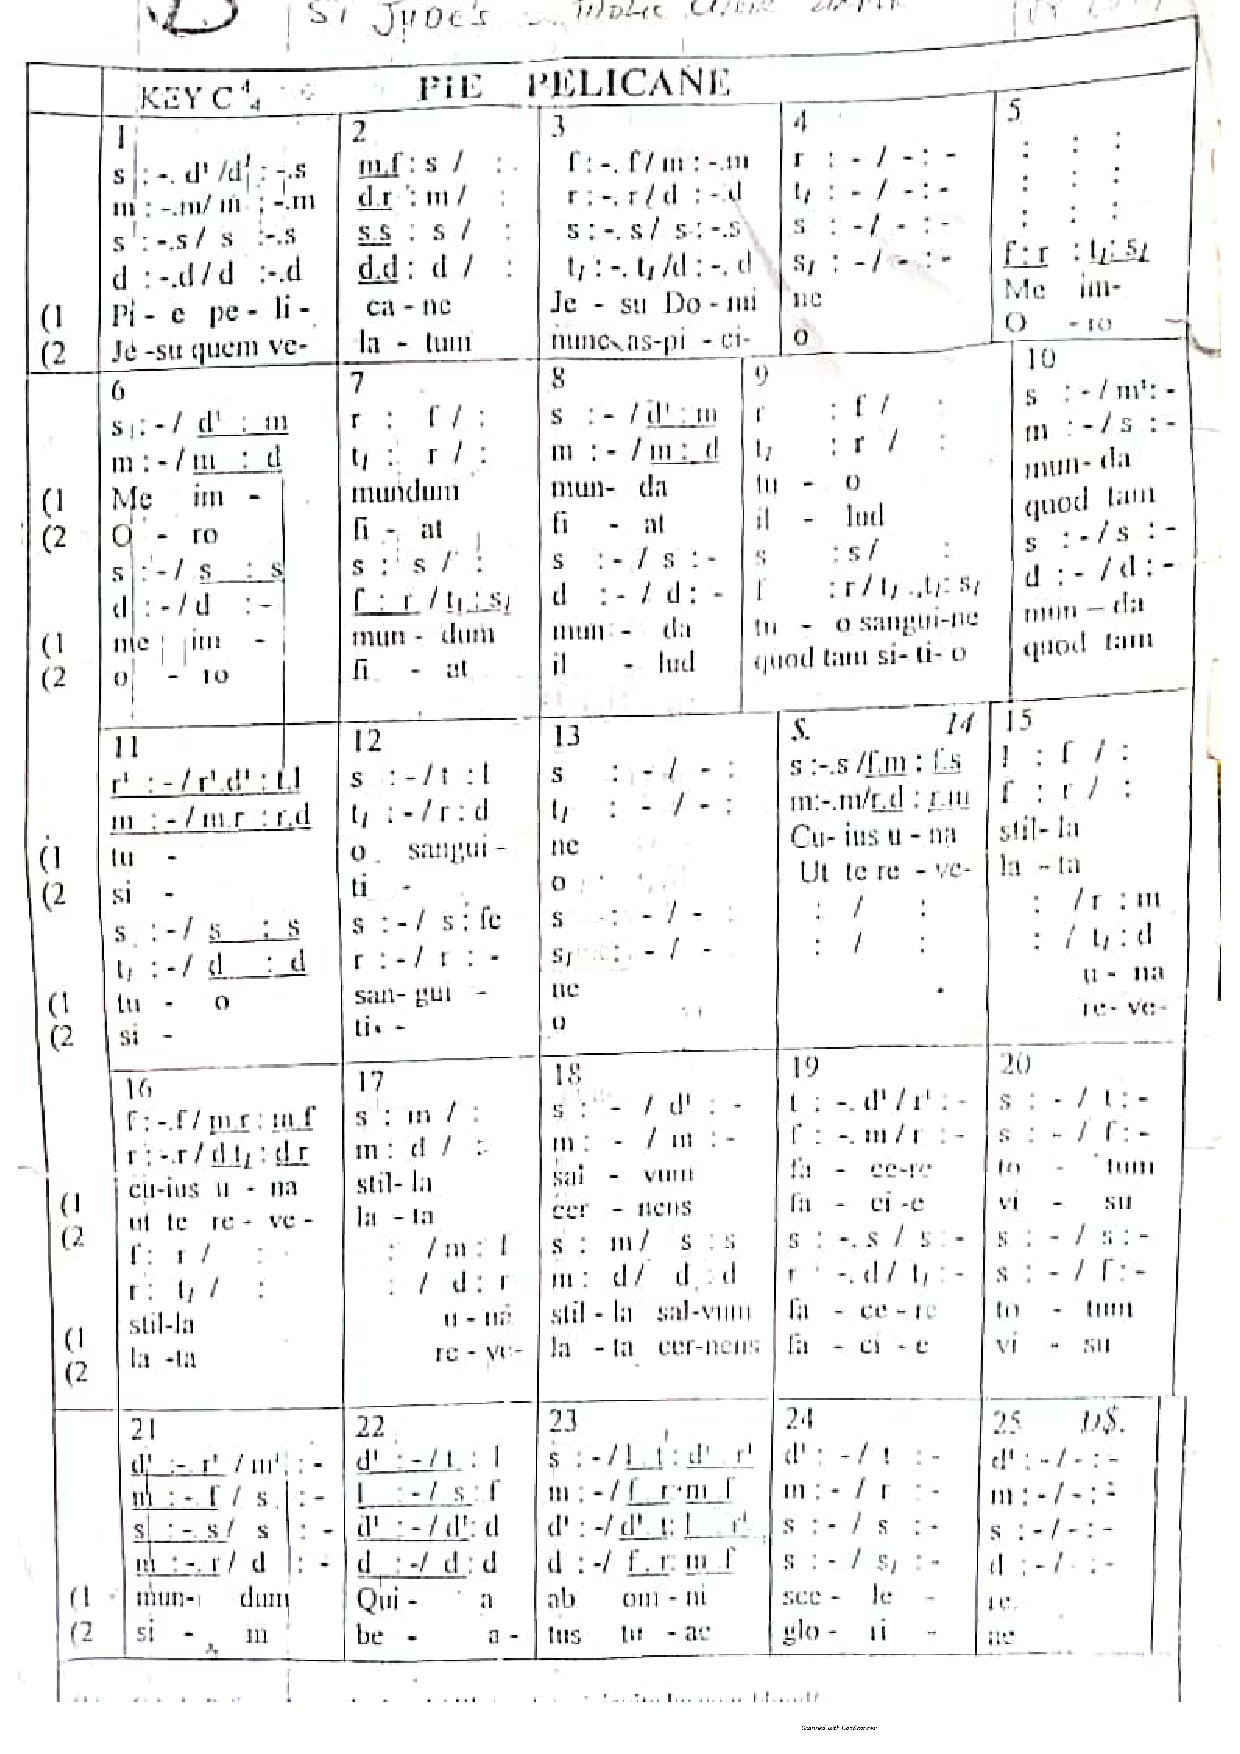 St JUDE'S
KEY C 4/4 PIE PELICANE
1 2 3 4 5
s : -. d' /d' : -.s m.f : s / : f : -. f / m : -.m r : - / - : - : : :
m : -.m/ m : -.m d.r : m / : r : -. r / d : -.d t, : - / - : - : : :
s : -.s / s :-.s s.s : s / : s : -. s / s : -.s s : - / - : - : : :
d : -.d / d :-.d d.d : d / : t, : -. t, /d : -. d s, : - / - : - f : r : t, : s,
(1 Pi - e pe - li - ca - ne Je - su Do - mi ne Me im-
(2 Je -su quem ve- la - tum nunc as-pi - ci- o O - ro
6 7 8 9 10
s : - / d' : m r : f / : s : - / d' : m r : f / : s : - / m' : -
m : - / m : d t, : r / : m : - / m : d t, : r / : m : - / s : -
(1 Me im - mundum mun- da tu - o mun- da
(2 O - ro fi - at fi - at il - lud quod tam
s : - / s : s s : s / : s : - / s : - s : s / : s : - / s : -
d : - / d : - f : r / t, : s, d : - / d : - f : r / t, ., t, : s, d : - / d : -
(1 me im - mun - dum mun - da tu - o sangui-ne mun – da
(2 o - ro fi - at il - lud quod tam si- ti- o quod tam
11 12 13 S. 14 15
r' : - / r'.d' : t.l s : - / t : l s : - / - : s :-.s /f.m : f.s l : f / :
m : - / m.r : r.d t, : - / r : d t, : - / - : m:-.m/r.d : r.m f : r / :
(1 tu - o sangui - ne Cu- ius u - na stil- la
(2 si - ti - o Ut te re - ve- la - ta
s : - / s : s s : - / s : fe s : - / - : : / : : / r : m
t, : - / d : d r : - / r : - s, : - / - : / : : / t, : d
(1 tu - o san- gui - ne u - na
(2 si - ti - o re- ve-
16 17 18 19 20
f : -.f / m.r : m.f s : m / : s : - / d' : - t : -. d' / r' : - s : - / t : -
r : -.r / d.t, : d.r m : d / : m : - / m : - f : -. m / r : - s : - / f : -
(1 cu-ius u - na stil- la sal - vum fa - ce-re to - tum
(2 ut te re - ve - la - ta cer - nens fa - ci -e vi - su
f : r / : : / m : f s : m / s : s s : -. s / s : - s : - / s : -
r : t, / : : / d : r m : d / d : d r : -. d / t, : - s : - / f : -
(1 stil-la u - na stil - la sal-vum fa - ce - re to - tum
(2 la -ta re - ve- la - ta cer-nens fa - ci - e vi - su
21 22 23 24 25 D.S.
d' : -. r' / m' : - d' : - / t : l s : - / l . t : d' . r' d' : - / t : - d' : - / - : -
m : -. f / s : - l : - / s : f m : - / f . r : m . f m : - / r : - m : - / - : -
s : -. s / s : - d' : - / d' : d d' : - / d' . t : l . r' s : - / s : - s : - / - : -
m : -. r / d : - d : - / d : d d : - / f . r : m . f s : - / s, : - d : - / - : -
(1 mun- dum Qui- a ab om - ni sce - le - re
(2 si - m be - a - tus tu - ae glo - ri - ne
Scanned with CamScanner